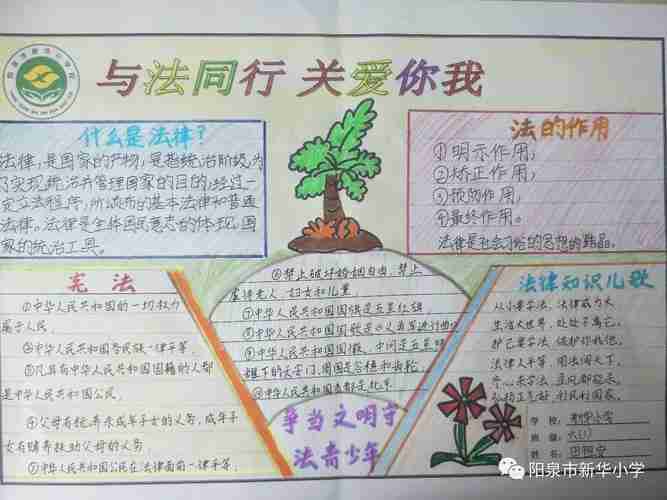 与法同行 关爱你我
什么是法律？
法律，是国家的产物，是指统治阶级为
了实现统治并管理国家的目的，经过一
定立法程序，所颁布的基本法律和普通
法律。法律是全体国民意志的体现，国
家的统治工具。
法的作用
①明示作用；
②矫正作用；
③预防作用；
④最终作用。
法律是社会习俗的思想的结晶。
宪法
①中华人民共和国的一切权力
属于人民。
②中华人民共和国各民族一律平等。
③凡具有中华人民共和国国籍的人都
是中华人民共和国公民。
④父母有抚养未成年子女的义务，成年子
女有赡养扶助父母的义务。
⑤中华人民共和国公民在法律面前一律平等。
⑥禁止破坏婚姻自由，禁止
虐待老人、妇女和儿童。
⑦中华人民共和国国旗是五星红旗。
⑧中华人民共和国国歌是义勇军进行曲
中华人民共和国国徽，中间是五星照
耀下的天安门，周围是谷穗和齿轮。
中华人民共和国首都是北京
争当文明守
法青少年
法律知识儿歌
从小要学法，法律威力大
生活大世界，处处于离它。
护它要学法，保护你我他。
法律人平等，用法闯天下。
弘扬正气好，利民利国家。
学校：新华小学
班级：六（1）
姓名：
阳泉市新华小学